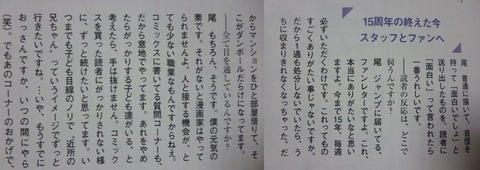 15周年の終えた今
スタッフとファンへ
尾 普通に描いて、自信を
持って「面白いでしょ」と
送り出したものを、読者に
「面白い」って言われたら
一番うれしい。
――読者の反応は、どこで
伺うんですか？
尾 ジャンプに届いてる、
ファンレターですよ。これ、
本当にありがたいなと思い
ますよ。今まで15年、毎週
必ずいただくわけです。これってもの
すごくありがたい事じゃないですか。
だから1通も処分しないでいたら、う
ちに収まりきれなくなっちゃった。だ
からマンションをひと部屋借りて、そ
こがダンボールだらけになってます。
――全て目を通しているんですか？
尾 もちろん。そうです。僕の元気の
素です。それがないと漫画家はやって
られませんよ。人と接する機会が、と
ても少ない職業なもんですからね。
コミックスに書いてる質問コーナーも、
だから意地でやってます。あれをやめ
たらがっかりする子ども達がいる、と
考えたら、手は抜けません。コミック
スを買った読者にがっかりされない様
に、ずっと続けたいと思ってます。い
つまでも子ども目線のノリで「近所の
兄ちゃん」っていうイメージでずっと
行きたいですね。…いや、もうすでに
おっさんですか、いつの間にやら
（笑）。でもあのコーナーのおかげで、